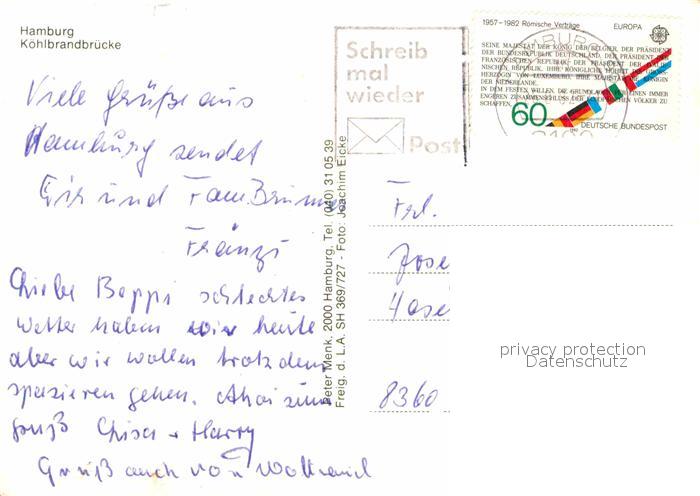 Hamburg
Köhlbrandbrücke
Viele Grüße aus
Hamburg sendet
Dir und Fam Brunner
Fränzi
Liebe Beppi schlechtes
Wetter haben wir heute
aber wir wollen trotzdem
spazieren gehen. Ahoi zum
Gruß + Harry
Gruß auch von Waltraud
Peter Menk, 2000 Hamburg, Tel. (040) 31 05 39
Freig. d. L.A. SH 369/727 - Foto: Joachim Eicke
Schreib
mal
wieder
Post
1957–1982 Römische Verträge EUROPA
SEINE MAJESTÄT DER KÖNIG DER BELGIER, DER PRÄSIDENT
DER BUNDESREPUBLIK DEUTSCHLAND, DER PRÄSIDENT DER
FRANZÖSISCHEN REPUBLIK, DER PRÄSIDENT DER ITALIE-
NISCHEN REPUBLIK, IHRE KÖNIGLICHE HOHEIT DIE GROSS-
HERZOGIN VON LUXEMBURG, IHRE MAJESTÄT DIE KÖNIGIN
DER NIEDERLANDE,
IN DEM FESTEN WILLEN, DIE GRUNDLAGEN EINES IMMER
ENGEREN ZUSAMMENSCHLUSSES DER EUROPÄISCHEN VÖLKER ZU
SCHAFFEN,
60
DEUTSCHE BUNDESPOST
Frl.
Jose
8360
privacy protection
Datenschutz